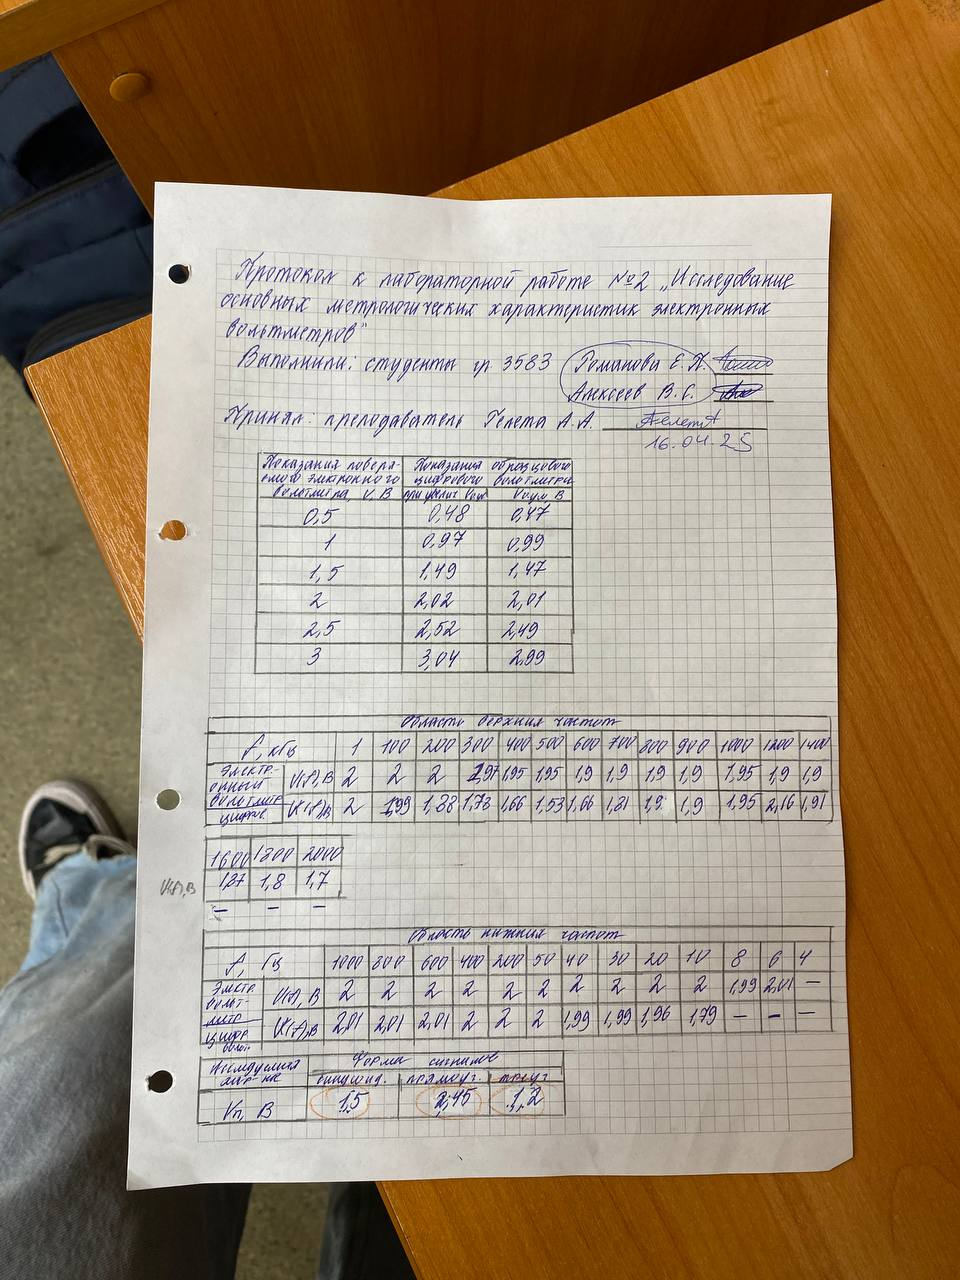 Протокол к лабораторной работе №2 „Исследование
основных метрологических характеристик электронных
вольтметров"
Выполнили: студенты гр. 3583 Романова Е.П.
Алексеев В.С.
Принял: преподаватель Гелета А.А.
16.04.25
Показания поверя- Показания образцового
емого электронного цифрового вольтметра
вольтметра, V, В при увелич Vоув Vоум В
0,5 0,48 0,47
1 0,97 0,99
1,5 1,49 1,47
2 2,02 2,01
2,5 2,52 2,49
3 3,04 2,99
Область верхних частот
f, кГц 1 100 200 300 400 500 600 700 800 900 1000 1200 1400
Электр-
онный U(f), В 2 2 2 1,97 1,95 1,95 1,9 1,9 1,9 1,9 1,95 1,9 1,9
вольтметр
цифров. U(f), В 2 1,99 1,88 1,78 1,66 1,53 1,66 1,81 1,9 1,9 1,95 2,16 1,91
1600 1800 2000
U(f), В 1,87 1,8 1,7
– – –
Область нижних частот
f, Гц 1000 800 600 400 200 50 40 30 20 10 8 6 4
Электр
вольт- U(f), В 2 2 2 2 2 2 2 2 2 2 1,99 2,01 –
метр
цифр U(f), В 2,01 2,01 2,01 2 2 2 1,99 1,99 1,96 1,79 – – –
вольт.
Исследуемая Форма сигналов
хар-ка синусоид. прямоуг. треуг
Vп, В 1,5 2,45 1,2